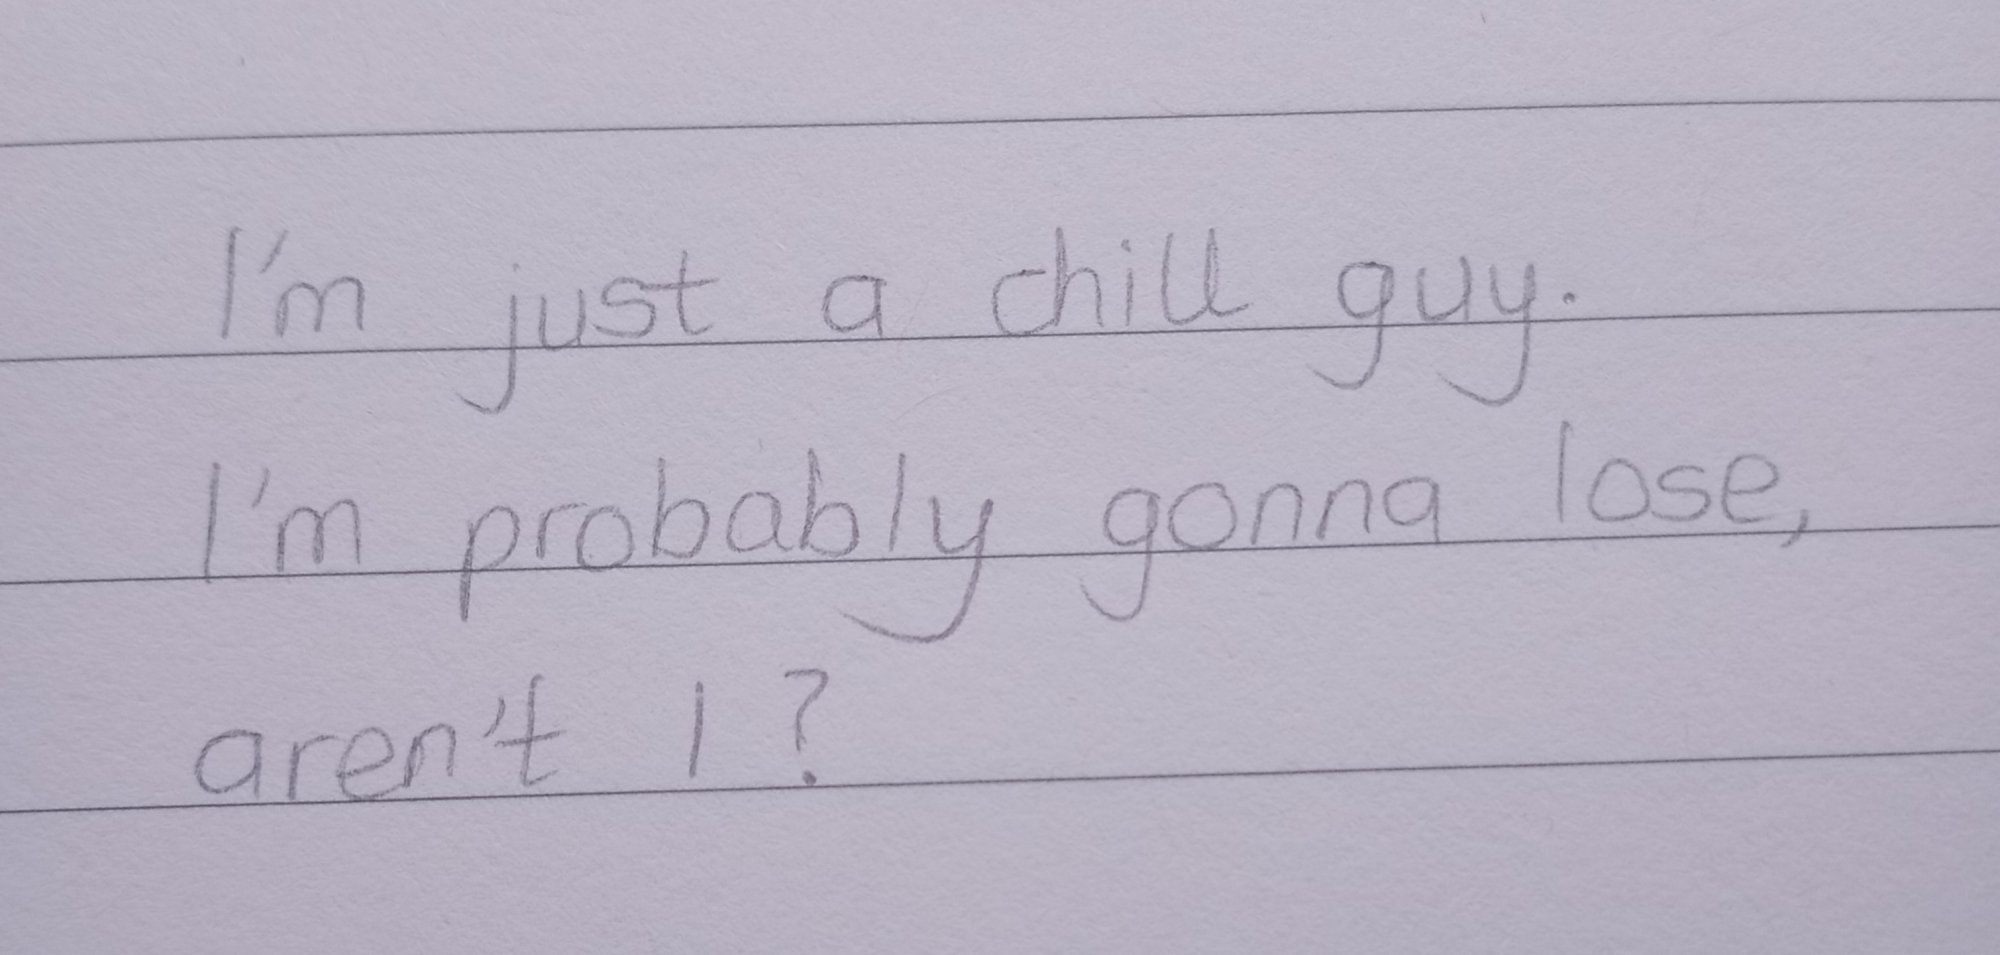 I'm just a chill guy.
I'm probably gonna lose,
aren't I?